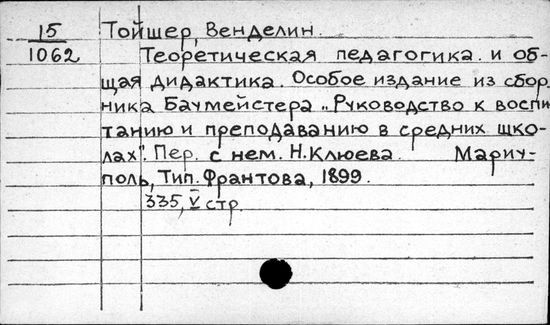 15 Тойшер, Венделин.
1062 Теоретическая педагогика и об-
щая дидактика. Особое издание из сбор
ника Баумейстера „Руководство к воспи
танию и преподаванию в средних шко-
лах". Пер. с нем. Н. Клюева. Мариу-
поль, Тип. Франтова, 1899.
335, V стр.